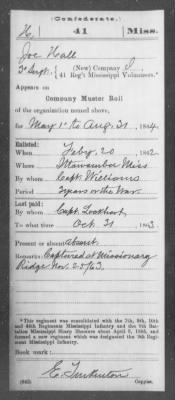 (Confederate.)
H. 41 Miss.
Joe Hall
3d Sergt., (New) Company I,
41 Reg't Mississippi Volunteers.*
Appears on
Company Muster Roll
of the organization named above,
for May 1 to Aug. 31, 1864.
Enlisted:
When Feb'y 20, 1862
Where Ittawamba Miss
By whom Capt. Williams
Period 3 years or the War
Last paid:
By whom Capt. Lockhart
To what time Oct 31, 1863
Present or absent Absent
Remarks: Captured at Missionary
Ridge Nov. 25/63.
*This regiment was consolidated with the 7th, 9th, 10th
and 44th Regiments Mississippi Infantry and the 9th Bat-
talion Mississippi Sharp Shooters about April 9, 1865, and
formed a new regiment which was designated the 9th Regi-
ment Mississippi Infantry.
Book mark:
(642)
Copyist.